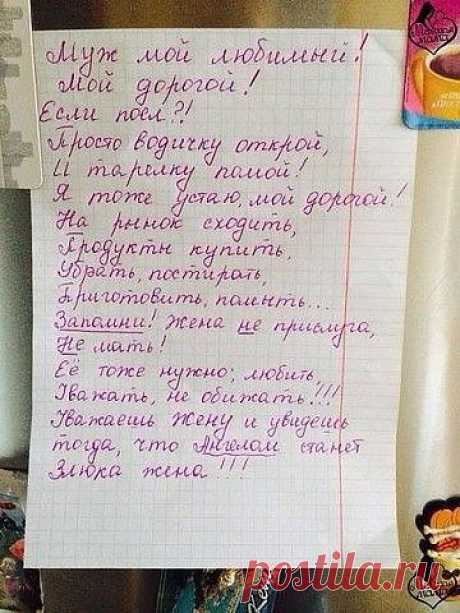 Муж мой любимый!
Мой дорогой!
Если поел?!
Просто водичку открой,
И тарелку помой!
Я тоже устаю, мой дорогой!
На рынок сходить,
Продукты купить,
Убрать, постирать,
Приготовить, помыть...
Запомни! Жена не прислуга,
Не мать!
Её тоже нужно; любить,
Уважать, не обижать!!!
Уважаешь Жену и увидешь
тогда, что Ангелом станет
Злюка жена!!!
postila.ru